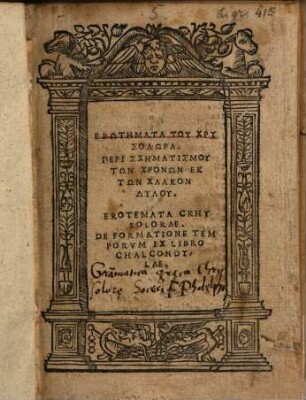 5
L.gr. 415
ΕΡΩΤΗΜΑΤΑ ΤΟΥ ΧΡΥ
ΣΟΛΩΡΑ.
ΠΕΡΙ ΣΧΗΜΑΤΙΣΜΟΥ
ΤΩΝ ΧΡΟΝΩΝ ΕΚ
ΤΩΝ ΧΑΛΚΟΝ
ΔΥΛΟΥ.
EROTEMATA CRHY
SOLORAE.
DE FORMATIONE TEM
PORVM EX LIBRO
CHALCONDY,
LAE.
Gramatica greca Chry
solore